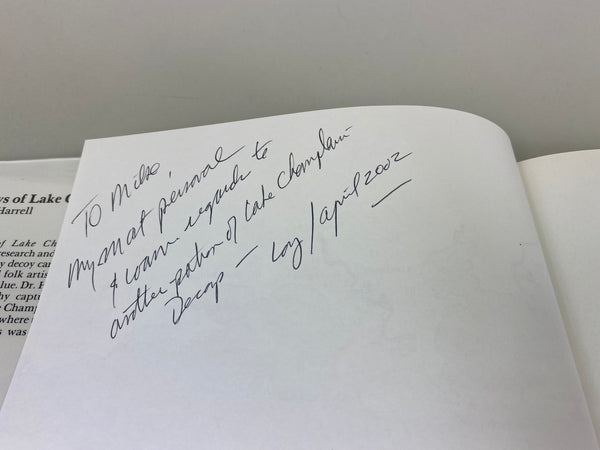 ys of Lake C
Harrell
of Lake Ch
research and
y decoy car
folk artis
lue. Dr. H
hy captu
Champ
where t
s was
To Mike,
My most personal
& warm regards to
another patron of Lake Champlain
Decoys — Loy / April 2002